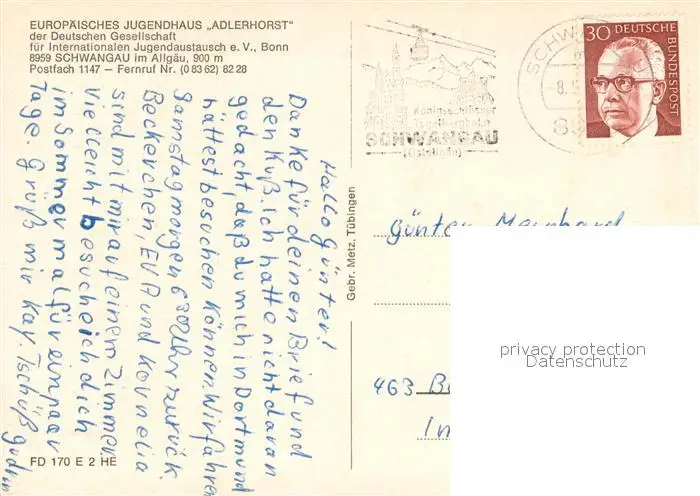 EUROPÄISCHES JUGENDHAUS „ADLERHORST"
der Deutschen Gesellschaft
für Internationalen Jugendaustausch e. V., Bonn
8959 SCHWANGAU im Allgäu, 900 m
Postfach 1147 — Fernruf Nr. (0 83 62) 82 28
Hallo Günter!
Danke für deinen Brief und
den Kuß. ich hatte nicht daran
gedacht, daß du mich in Dortmund
hättest besuchen können. Wir fahren
Samstagmorgen 630 Uhr zurück.
Beckerchen, EVA und Kornelia
sind mit mir auf einem Zimmer
Vielleicht besuche ich dich
im Sommer mal für ein paar
Tage. Grüß mir Kay. Tschüß Gudrun
FD 170 E 2 HE
Gebr. Metz, Tübingen
Königsschlösser
Tegelbergbahn
SCHWANGAU
(Ostallgäu)
30 DEUTSCHE
BUNDESPOST
Günter Meinhard
privacy protection
Datenschutz
463